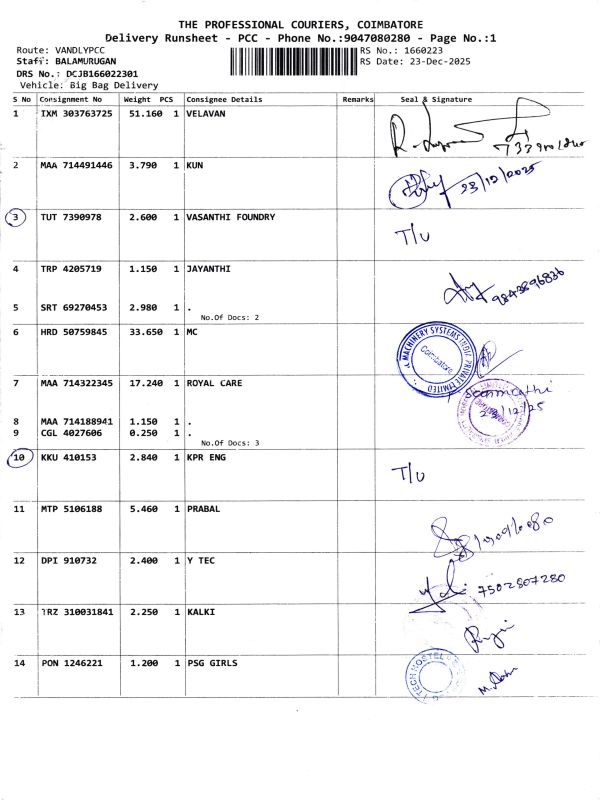 THE PROFESSIONAL COURIERS, COIMBATORE
Delivery Runsheet - PCC - Phone No.:9047080280 - Page No.:1
Route: VANDLYPCC RS No.: 1660223
Staff: BALAMURUGAN RS Date: 23-Dec-2025
DRS No.: DCJB166022301
Vehicle: Big Bag Delivery
S No Consignment No Weight PCS Consignee Details Remarks Seal & Signature
1 IXM 303763725 51.160 1 VELAVAN
2 MAA 714491446 3.790 1 KUN 23/12/2025
3 TUT 7390978 2.600 1 VASANTHI FOUNDRY T/U
4 TRP 4205719 1.150 1 JAYANTHI 9843896836
5 SRT 69270453 2.980 1 .
No.Of Docs: 2
6 HRD 50759845 33.650 1 MC MACHINERY SYSTEMS INDIA PRIVATE LIMITED Coimbatore
7 MAA 714322345 17.240 1 ROYAL CARE
23/12/25
8 MAA 714188941 1.150 1 .
9 CGL 4027606 0.250 1 .
No.Of Docs: 3
10 KKU 410153 2.840 1 KPR ENG T/U
11 MTP 5106188 5.460 1 PRABAL
12 DPI 910732 2.400 1 Y TEC 7502807280
13 TRZ 310031841 2.250 1 KALKI
14 PON 1246221 1.200 1 PSG GIRLS TECH HOSTEL